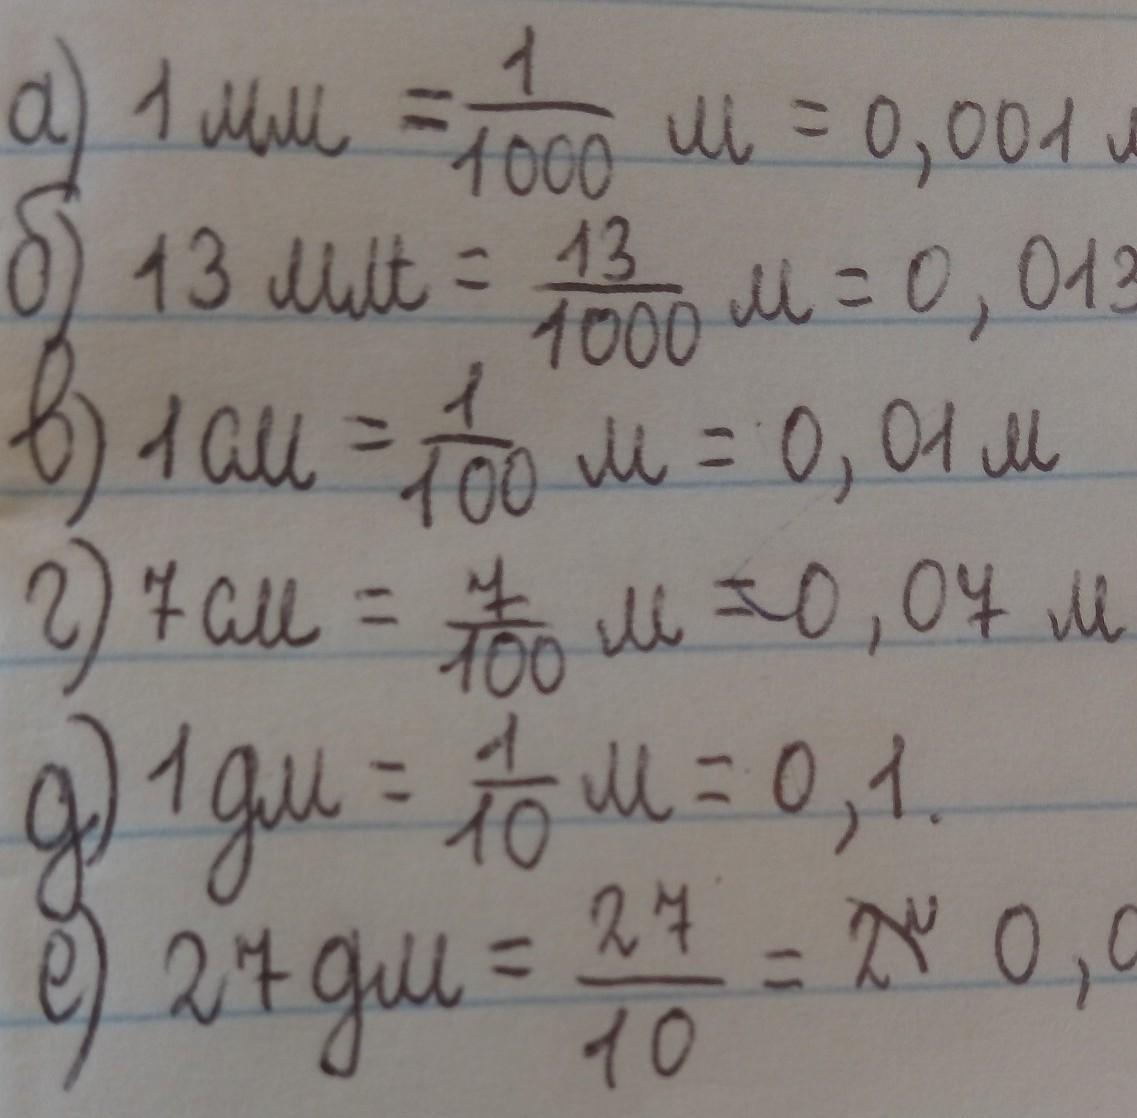 а) 1 мм = 1/1000 м = 0,001 м
б) 13 мм = 13/1000 м = 0,013
в) 1 см = 1/100 м = 0,01 м
г) 7 см = 7/100 м = 0,07 м
д) 1 дм = 1/10 м = 0,1.
е) 27 дм = 27/10 = 0,